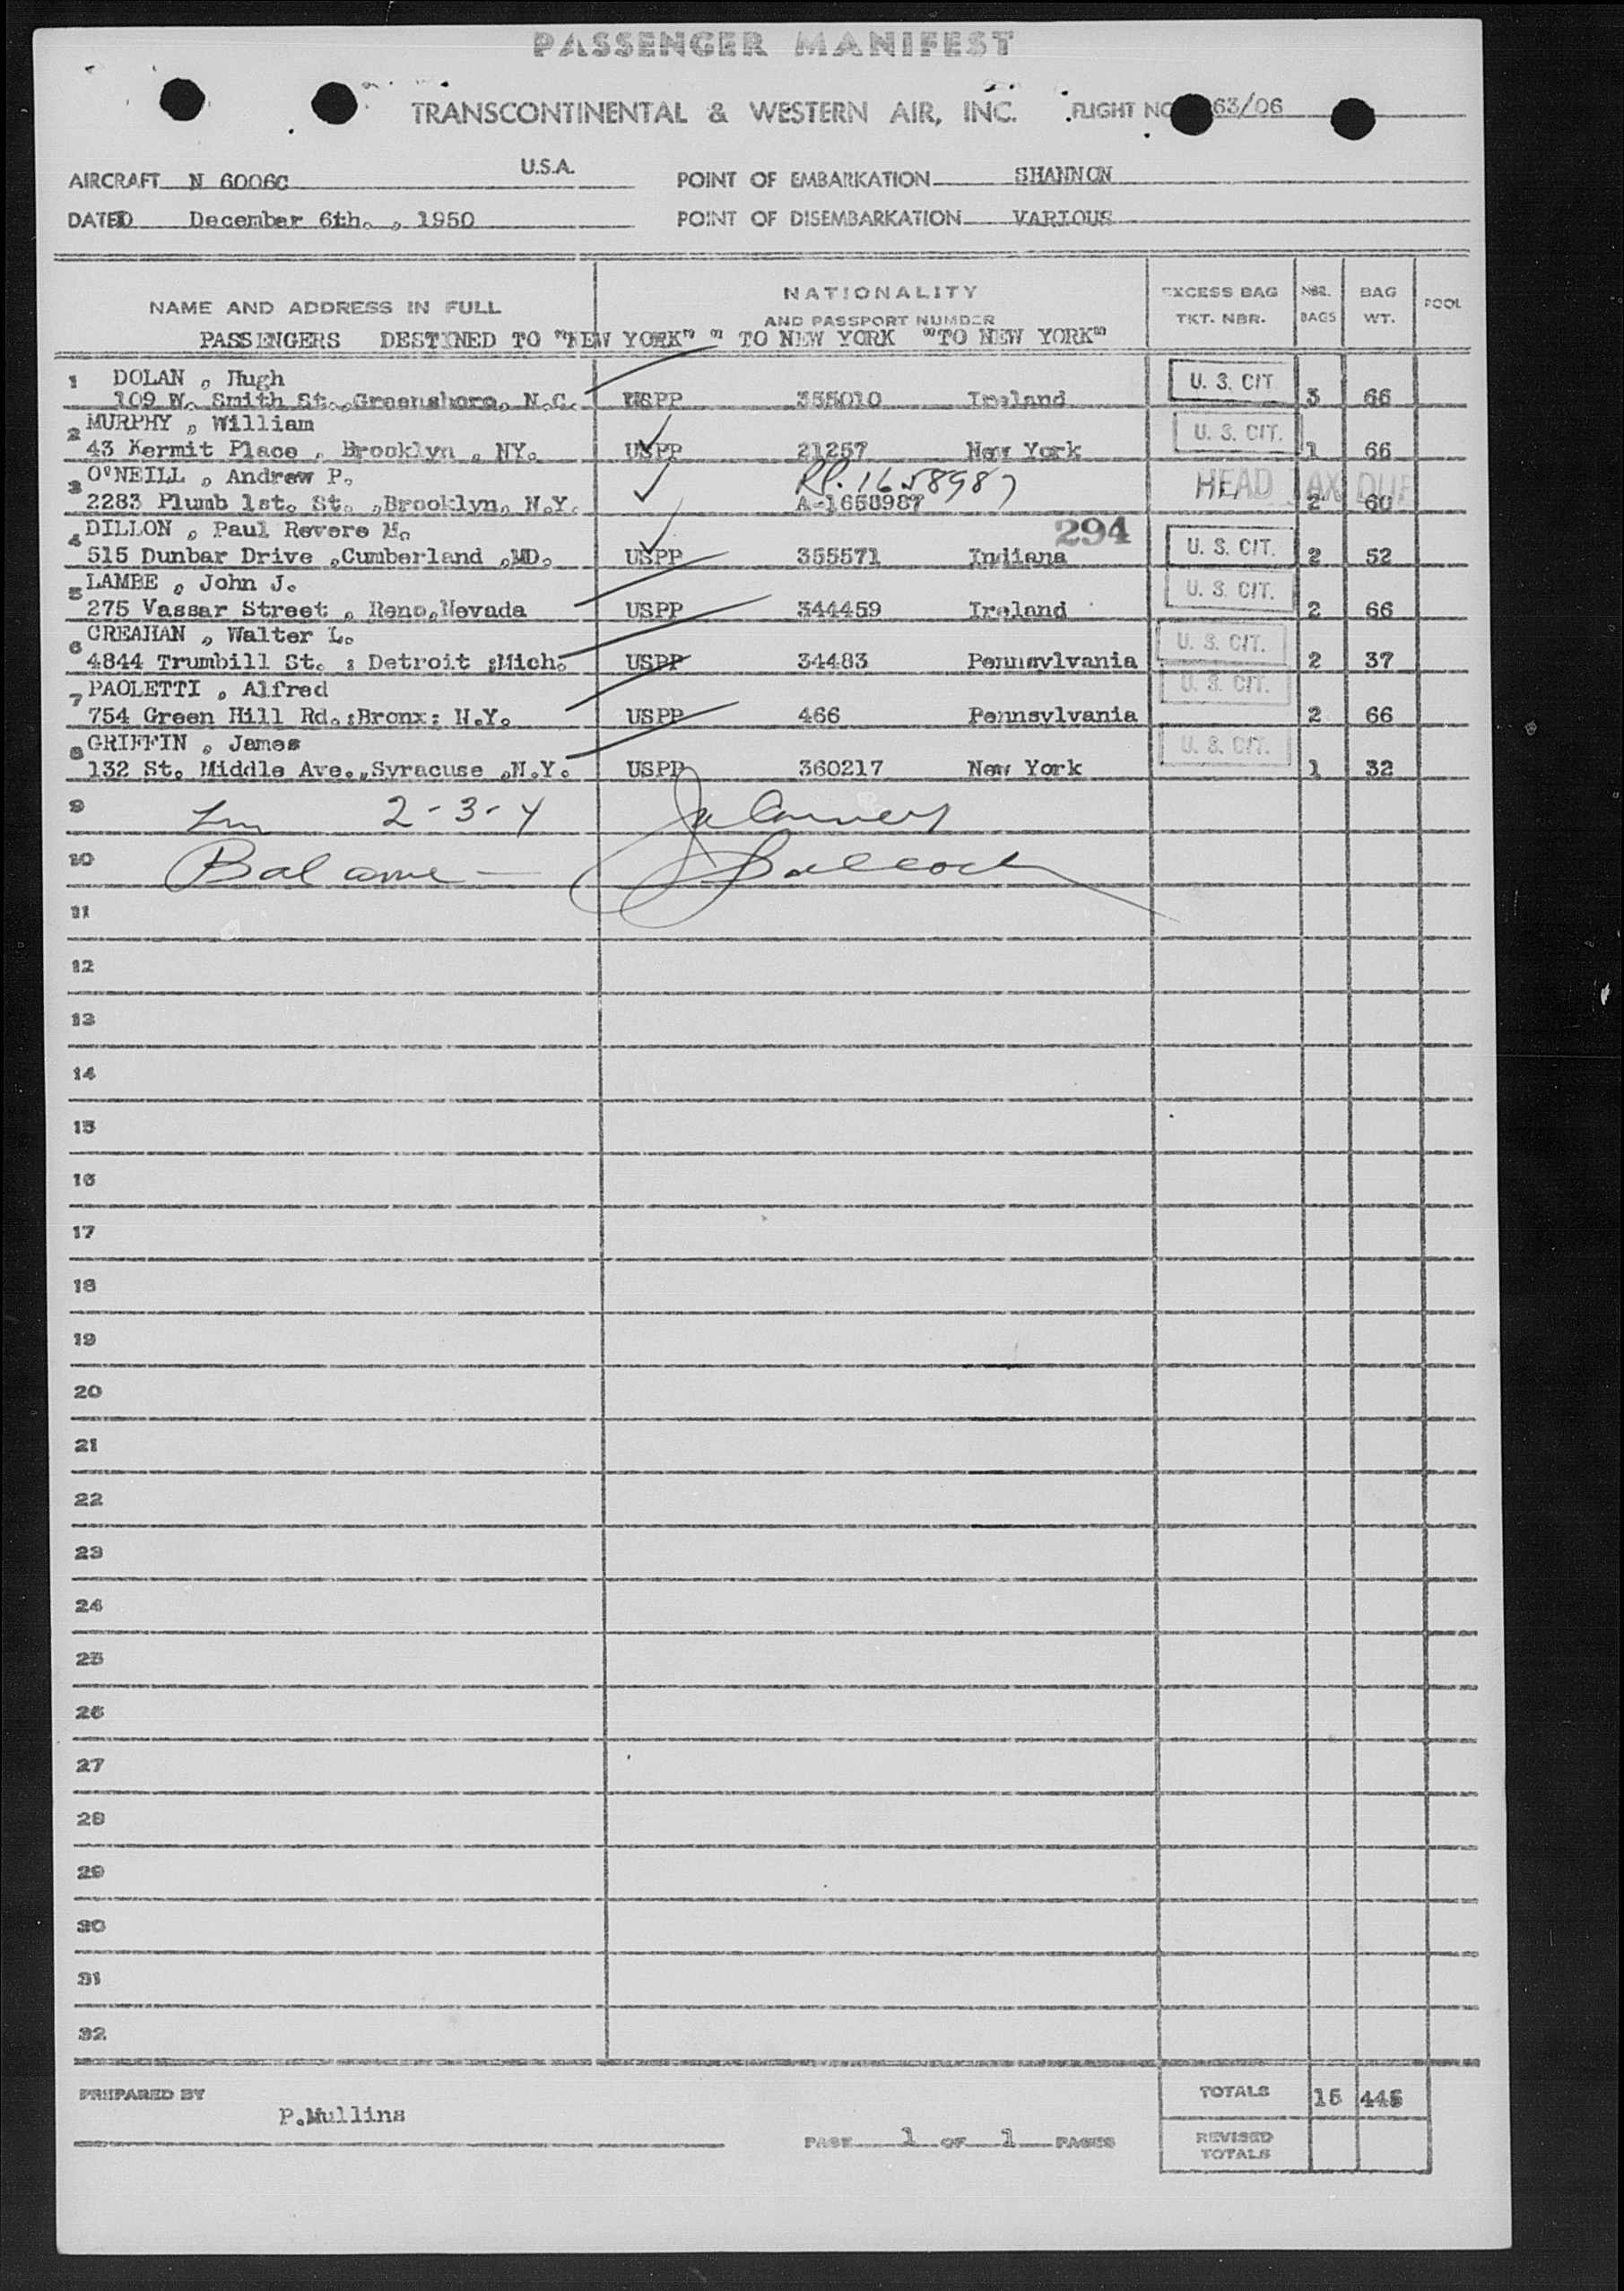 PASSENGER MANIFEST
TRANSCONTINENTAL & WESTERN AIR, INC. FLIGHT NO 63/06
AIRCRAFT N 6006C U.S.A. POINT OF EMBARKATION SHANNON
DATED December 6th. , 1950 POINT OF DISEMBARKATION VARIOUS
NAME AND ADDRESS IN FULL NATIONALITY AND PASSPORT NUMBER EXCESS BAG TKT. NBR. NBR. BAGS BAG WT. POOL
PASSENGERS DESTINED TO "NEW YORK" " TO NEW YORK "TO NEW YORK"
1 DOLAN , Hugh U. S. CIT.
109 W. Smith St.,Greensboro, N.C. USPP 355010 Ireland 3 66
2 MURPHY , William U. S. CIT.
43 Kermit Place , Brooklyn , NY. USPP 21257 New York 1 66
3 O'NEILL , Andrew P. RP. 1658987 HEAD TAX DUE
2283 Plumb 1st. St. ,Brooklyn, N.Y. A-1658987 2 60
294
4 DILLON , Paul Revere M. U. S. CIT.
515 Dunbar Drive ,Cumberland ,MD. USPP 355571 Indiana 2 52
5 LAMBE , John J. U. S. CIT.
275 Vassar Street , Reno,Nevada USPP 344459 Ireland 2 66
6 CREAHAN , Walter L. U. S. CIT.
4844 Trumbill St. ; Detroit ;Mich. USPP 34483 Pennsylvania 2 37
7 PAOLETTI , Alfred U. S. CIT.
754 Green Hill Rd.:Bronx: N.Y. USPP 466 Pennsylvania 2 66
8 GRIFFIN , James U. S. CIT.
132 St. Middle Ave.,Syracuse ,N.Y. USPP 360217 New York 1 32
9 2-3-4
10 Balance -
11
12
13
14
15
16
17
18
19
20
21
22
23
24
25
26
27
28
29
30
31
32
PREPARED BY P.Mullins
PAGE 1 OF 1 PAGES
TOTALS 15 445
REVISED TOTALS